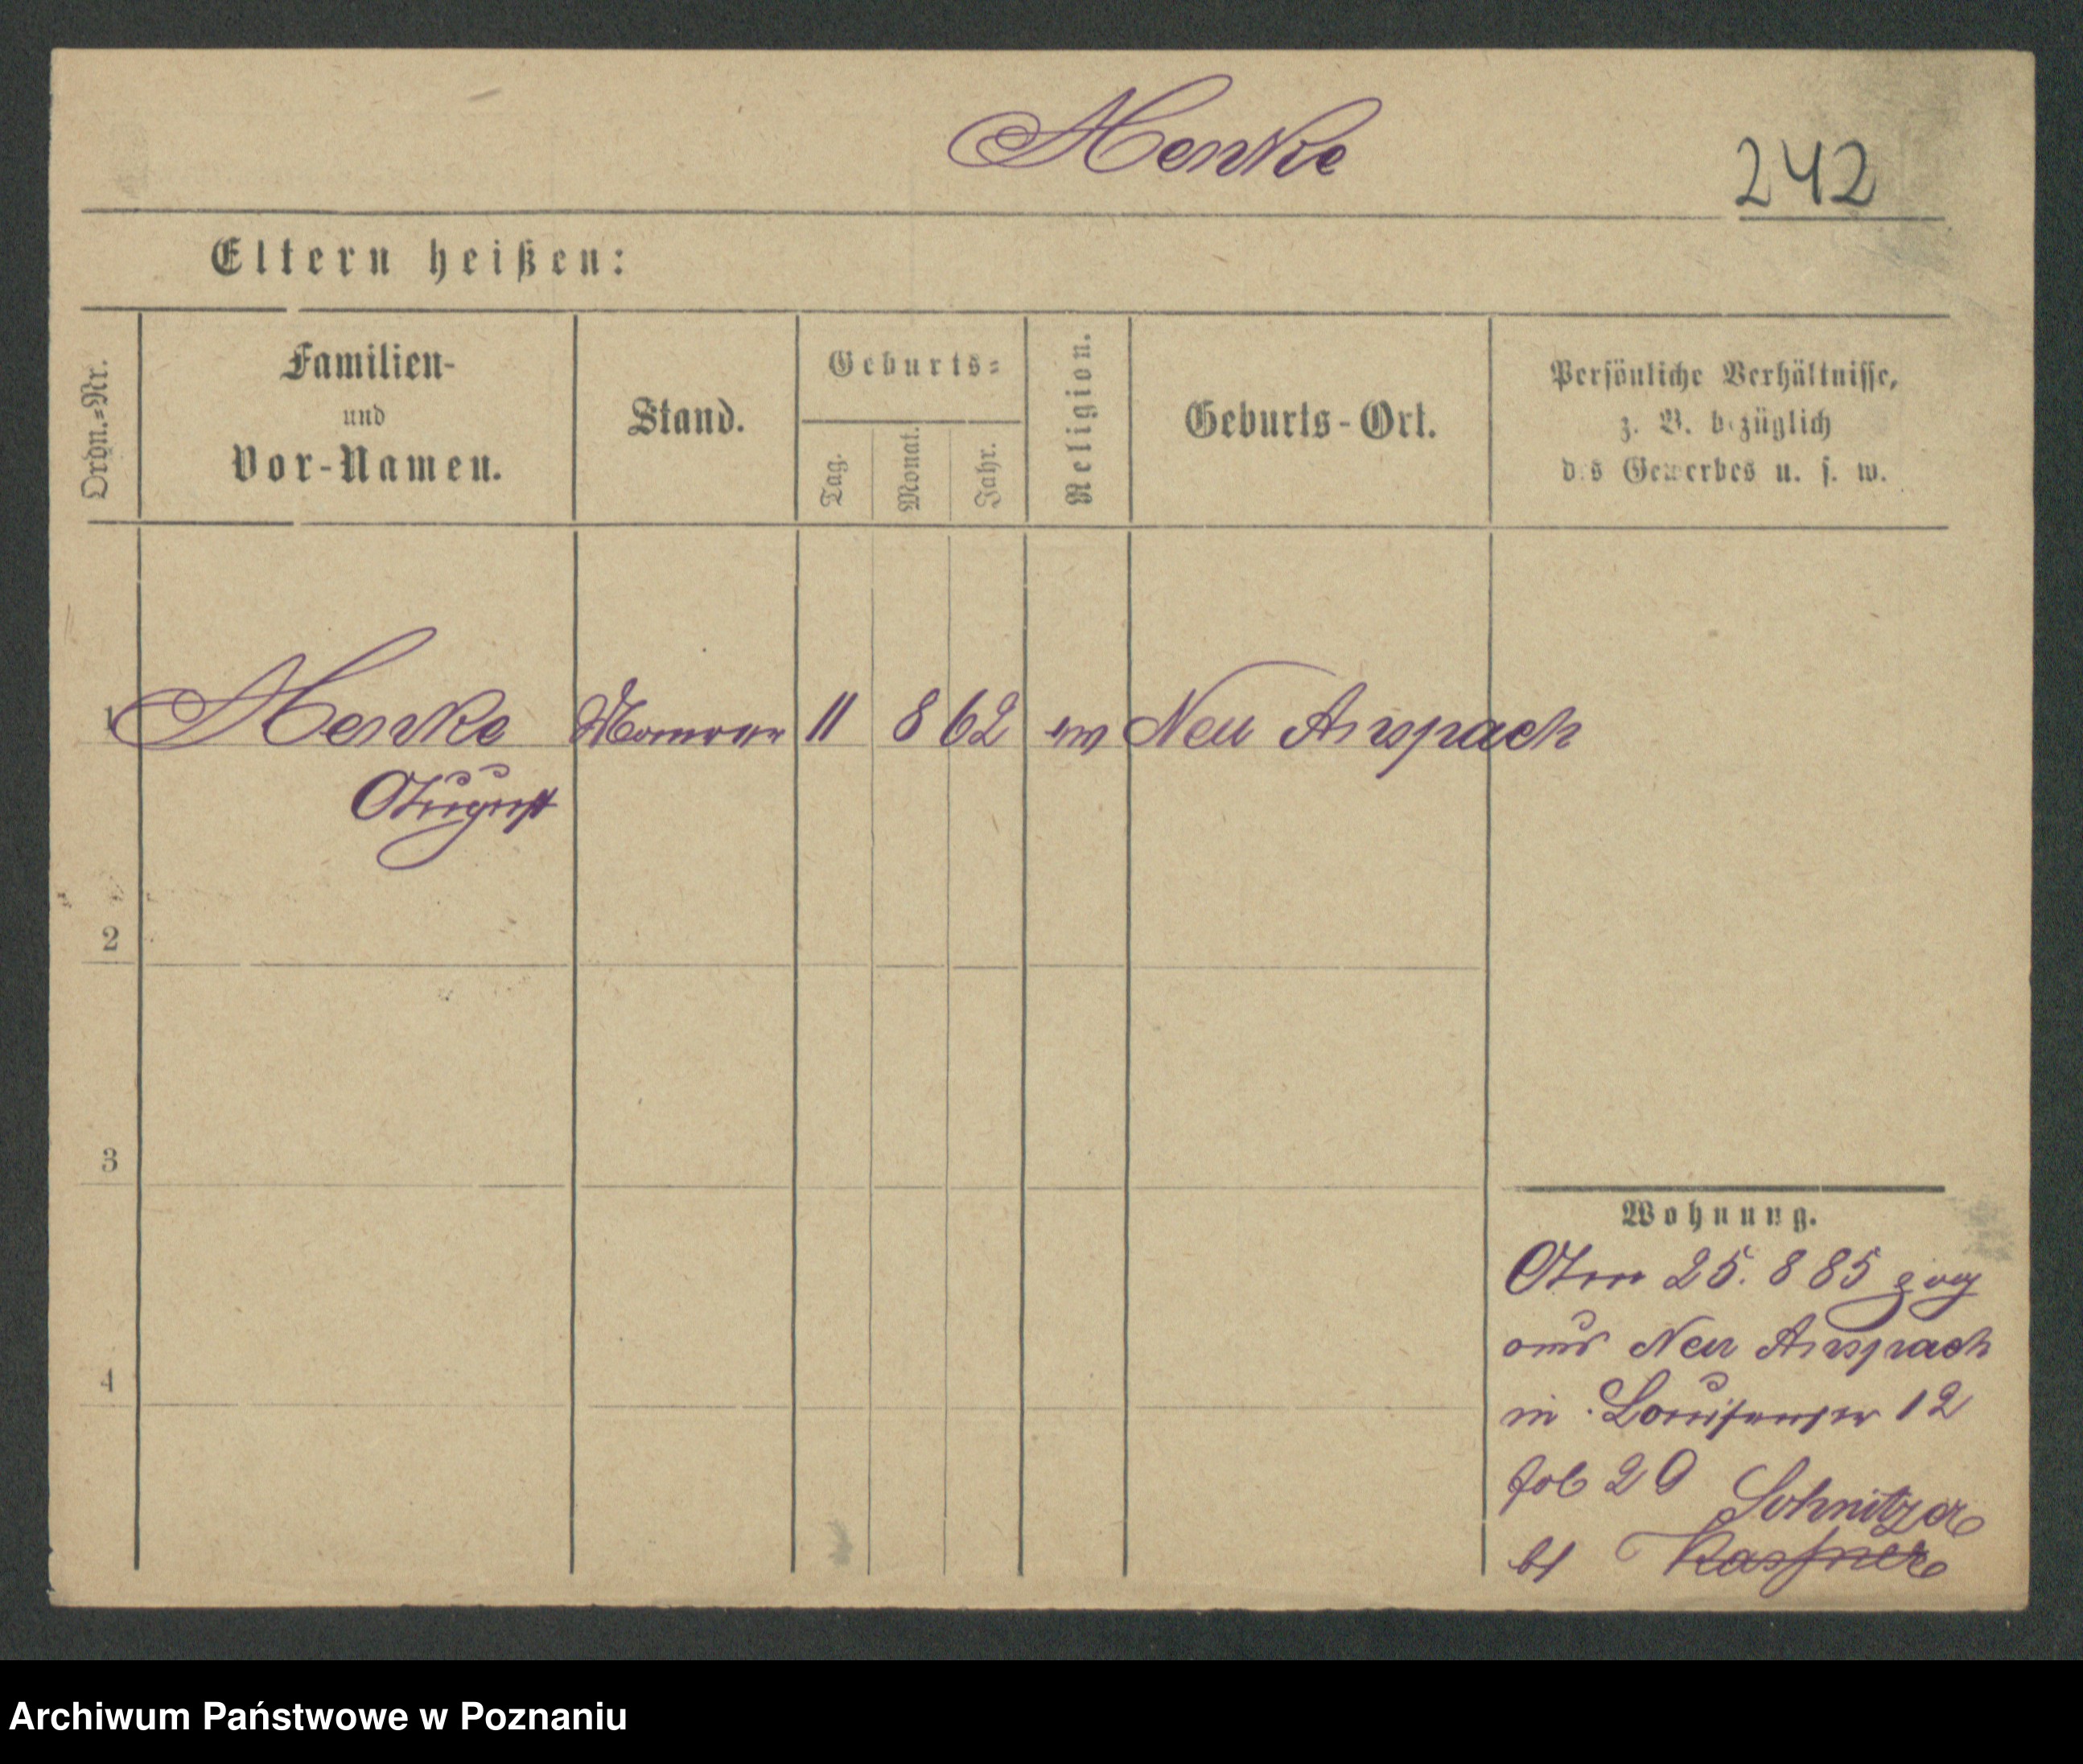 Henke
242
Eltern heißen:
Ordn.=Nr.
Familien-
und
Vor-Namen.
Stand.
Geburts=
Tag.
Monat.
Jahr.
Religion.
Geburts-Ort.
Persönliche Verhältnisse,
z. B. bezüglich
des Gewerbes u. s. w.
1 Henke 11 8 62 ev Neu Anspach
August
2
3
4
Wohnung.
Am 25. 8 85 zog
aus Neu Anspach
in Louisenstr 12
fol 20
Schnitzer
bf Kassner
Archiwum Państwowe w Poznaniu